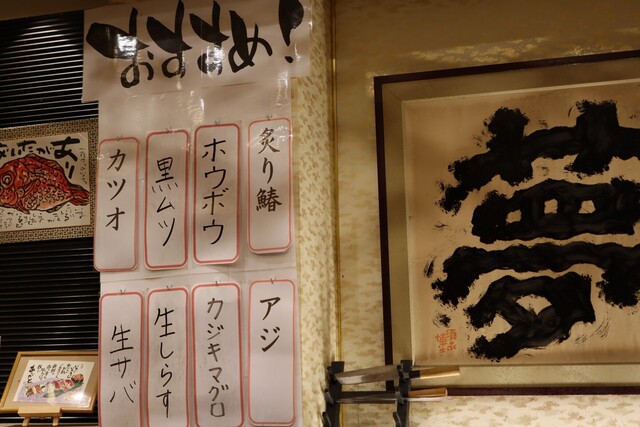 おすすめ!
炙り鰆
ホウボウ
黒ムツ
カツオ
アジ
カジキマグロ
生しらす
生サバ
夢